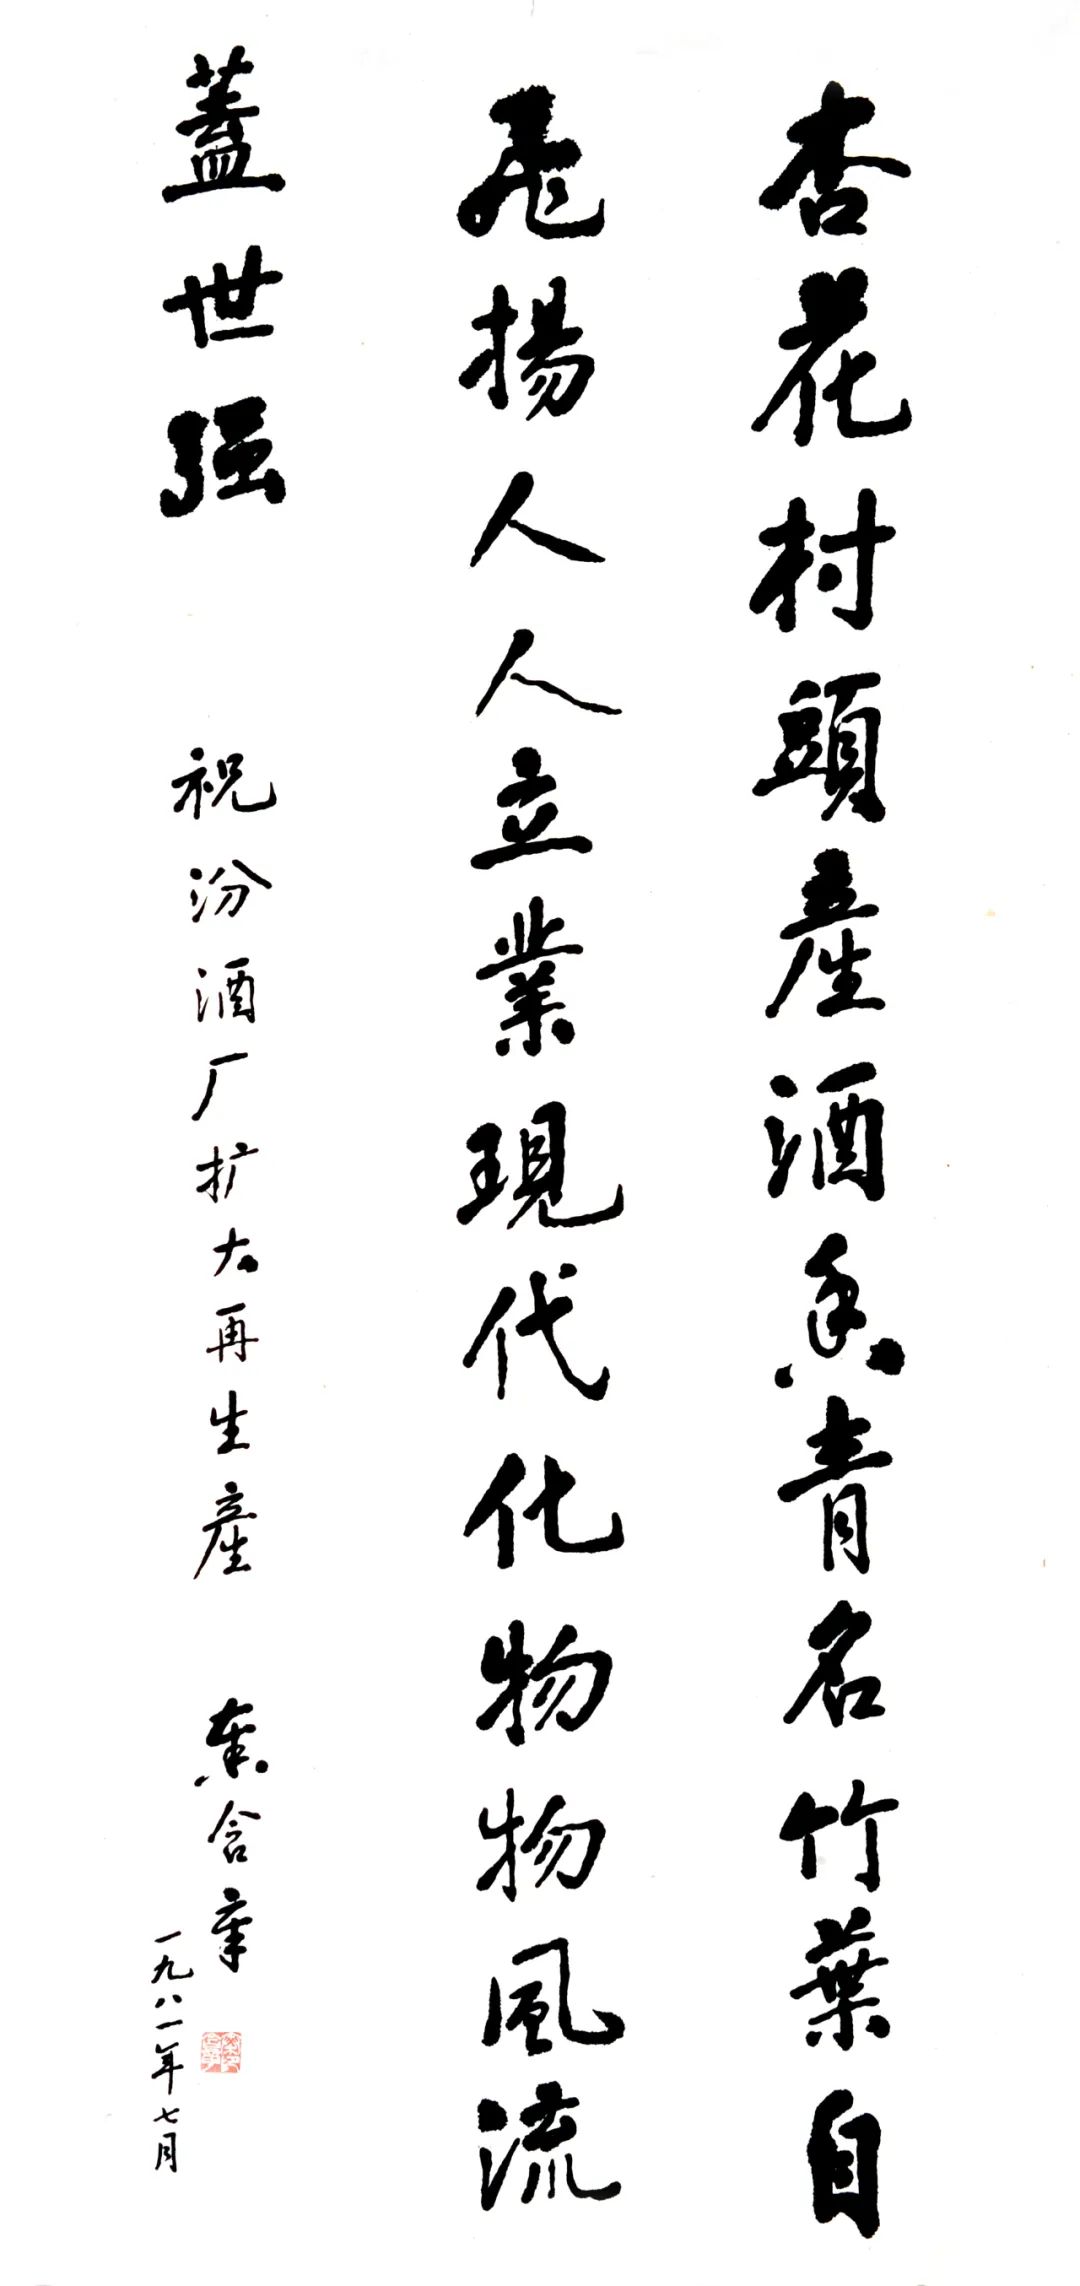 杏花村頭產酒香青名竹葉自
飛揚人人立業現代化物物風流
蓋世强
祝汾酒厂扩大再生產
秦含章
一九八一年七月